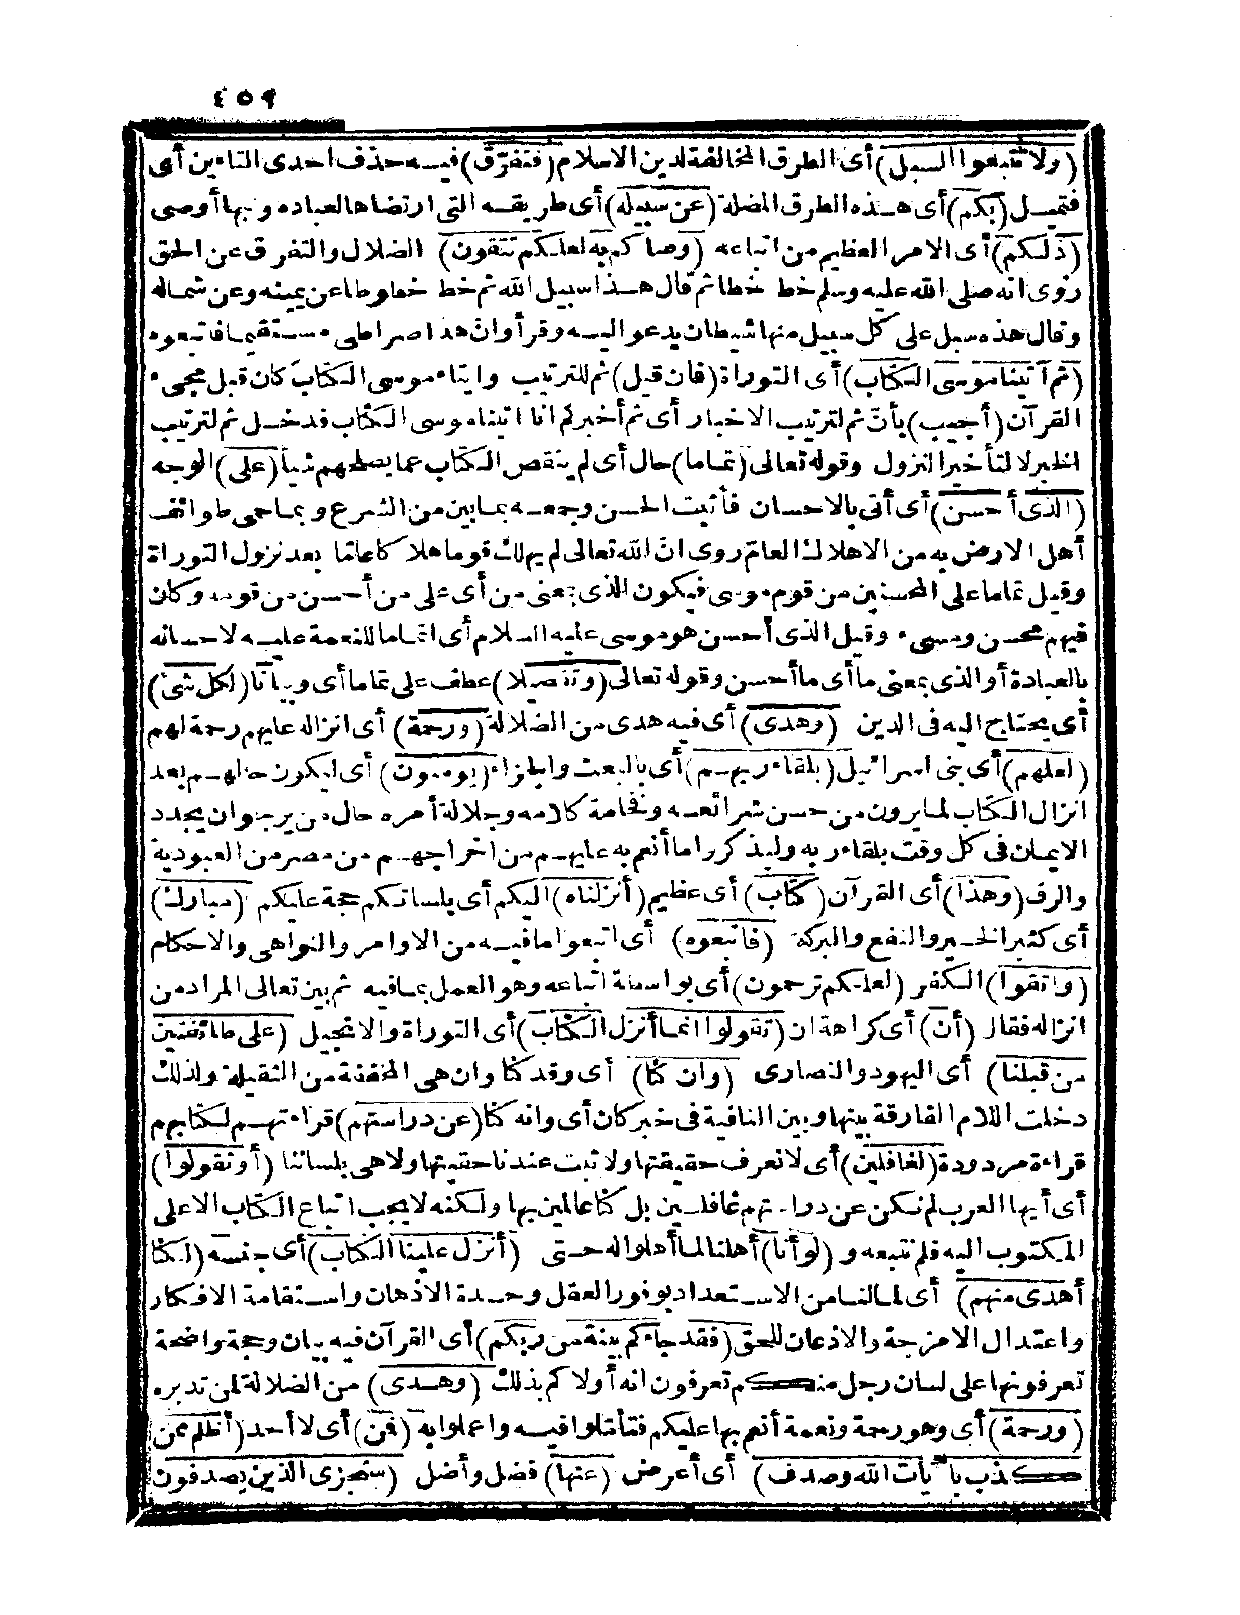 ٤٥٩
(ولا تتبعوا السبل) أى الطرق المخالفة لدين الاسلام (فتفرّق) فيه حذف احدى التاءين أى
فتميل (بكم) أى هذه الطرق المضلة (عن سبيله) أى طريقه التى ارتضاها لعباده وبها أوصى
(ذلكم) أى الامر العظيم من اتباعه (وصاكم به لعلكم تتقون) الضلال والتفرق عن الحق
روى انه صلى الله عليه وسلم خط خطا ثم قال هذا سبيل الله ثم خط خطوطا عن يمينه وعن شماله
وقال هذه سبل على كل سبيل منها شيطان يدعو اليه وقرأ وانّ هذا صراطى مستقيما فاتبعوه
(ثم آتينا موسى الكتاب) أى التوراة (فان قيل) ثم للترتيب وايتاء موسى الكتاب كان قبل مجىء
القرآن (أجيب) بأنّ ثم لترتيب الاخبار أى ثم أخبركم انا اتيناه موسى الكتاب فدخل ثم لترتيب
الخبر لا لتأخير النزول وقوله تعالى (تماما) حال أى لم ينقص الكتاب عما يصلحهم شيأ (على) الوجه
(الذى أحسن) أى أتى بالاحسان فأثبت الحسن وجمعه بما بين من الشرع وبما حمى طوائف
أهل الارض به من الاهلاك العامّ روى انّ الله تعالى لم يهلك قوما هلاكا عامّا بعد نزول التوراة
وقيل تماما على المحسنين من قوم موسى فيكون الذى بمعنى من أى على من أحسن من قومه وكان
فيهم محسن ومسىء وقيل الذى أحسن هو موسى عليه السلام أى اتماما للنعمة عليه لاحسانه
بالعبادة أو الذى بمعنى ما أى ما أحسن وقوله تعالى (وتفصيلا) عطف على تماما أى وبيانا (لكل شئ)
أى يحتاج اليه فى الدين (وهدى) أى فيه هدى من الضلالة (ورحمة) أى انزاله عليهم رحمة لهم
(لعلهم) أى بنى اسرائيل (بلقاء ربهم) أى بالبعث والجزاء (يومنون) أى ليكون حالهم بعد
انزال الكتاب لما يرون من حسن شرائعه وفخامة كلامه وجلالة أمره حال من يرجو ان يجدد
الايمان فى كل وقت بلقاء ربه وليذكروا ما أنعم به عليهم من اخراجهم من مصر من العبودية
والرق (وهذا) أى القرآن (كتاب) أى عظيم (أنزلناه) اليكم أى بلسانكم حجة عليكم (مبارك)
أى كثير الخير والنفع والبركة (فاتبعوه) أى اتبعوا ما فيه من الاوامر والنواهى والاحكام
(واتقوا) الكفر (لعلكم ترحمون) أى بواسطة اتباعه وهو العمل بما فيه ثم بين تعالى المراد من
انزاله فقال (أن) أى كراهة ان (تقولوا انما أنزل الكتاب) أى التوراة والانجيل (على طائفتين
من قبلنا) أى اليهود والنصارى (وان كنا) أى وقد كنا وان هى المخففة من الثقيلة ولذلك
دخلت اللام الفارقة بينها وبين النافية فى خبر كان أى وانه كنا (عن دراستهم) قراءتهم لكتابهم
قراءة مردودة (لغافلين) أى لا نعرف حقيقتها ولا ثبت عندنا حقيتها ولا هى بلساننا (أو تقولوا)
أى أيها العرب لم نكن عن دراستهم غافلين بل كنا عالمين بها ولكنه لا يجب اتباع الكتاب الا على
المكتوب اليه فلم نتبعه و (لو أنا) أهلنا لما أهلوا له حتى (أنزل علينا الكتاب) أى جنسه (لكنا
أهدى منهم) أى لما لنا من الاستعداد بوفور العقل وحدة الاذهان واستقامة الافكار
واعتدال الامزجة والاذعان للحق (فقد جاءكم بينة من ربكم) أى القرآن فيه بيان وحجة واضحة
تعرفونها على لسان رجل منكم تعرفون انه أولاكم بذلك (وهدى) من الضلالة لمن تدبره
(ورحمة) أى وهو رحمة ونعمة أنعم بها عليكم فتأملوا فيه واعملوا به (فمن) أى لا أحد (أظلم ممن
كذب باۤيات الله وصدف) أى أعرض (عنها) فضل وأضل (سنجزى الذين يصدفون